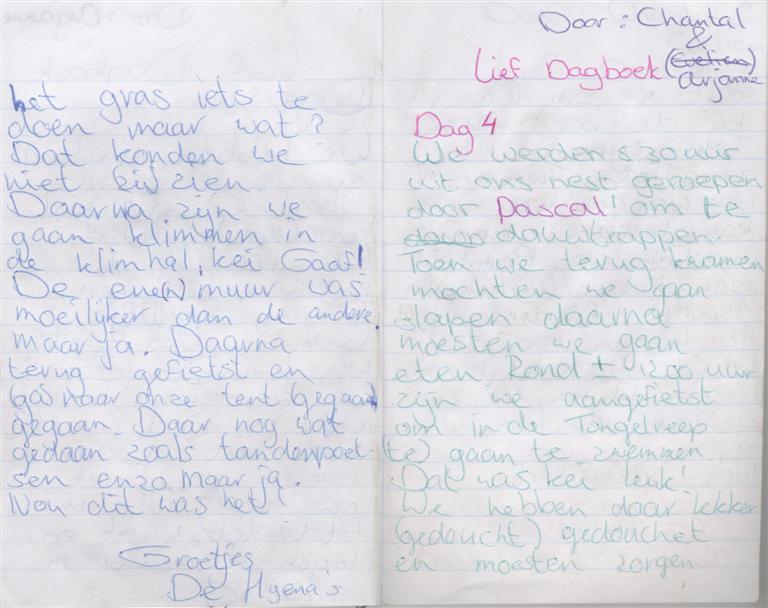 het gras iets te
doen maar wat?
Dat konden we
niet zien.
Daarna zijn we
gaan klimmen in
de klimhal, kei Gaaf!
De ene(n) muur was
moeilijker dan de andere.
maar ja. Daarna
terug gefietst en
naar onze tent (gegaan)
gegaan. Daar nog wat
gedaan zoals tandenpoet-
sen enzo. Maar ja.
Nou dit was het!
Groetjes
De Hyena's
Door: Chantal
&
Lief Dagboek Arjanne
Dag 4
We werden 5 30 uur
uit ons nest geroepen
door Pascal! om te
dauwtrappen.
Toen we terug kwamen
mochten we gaan
slapen daarna
moesten we gaan
eten. Rond ± 1200 uur
zijn we aangefietst
om in de Tongelreep
(te) gaan te zwemmen
Dat was kei leuk!
We hebben daar lekker
(gedoucht) gedouchet
en moesten zorgen